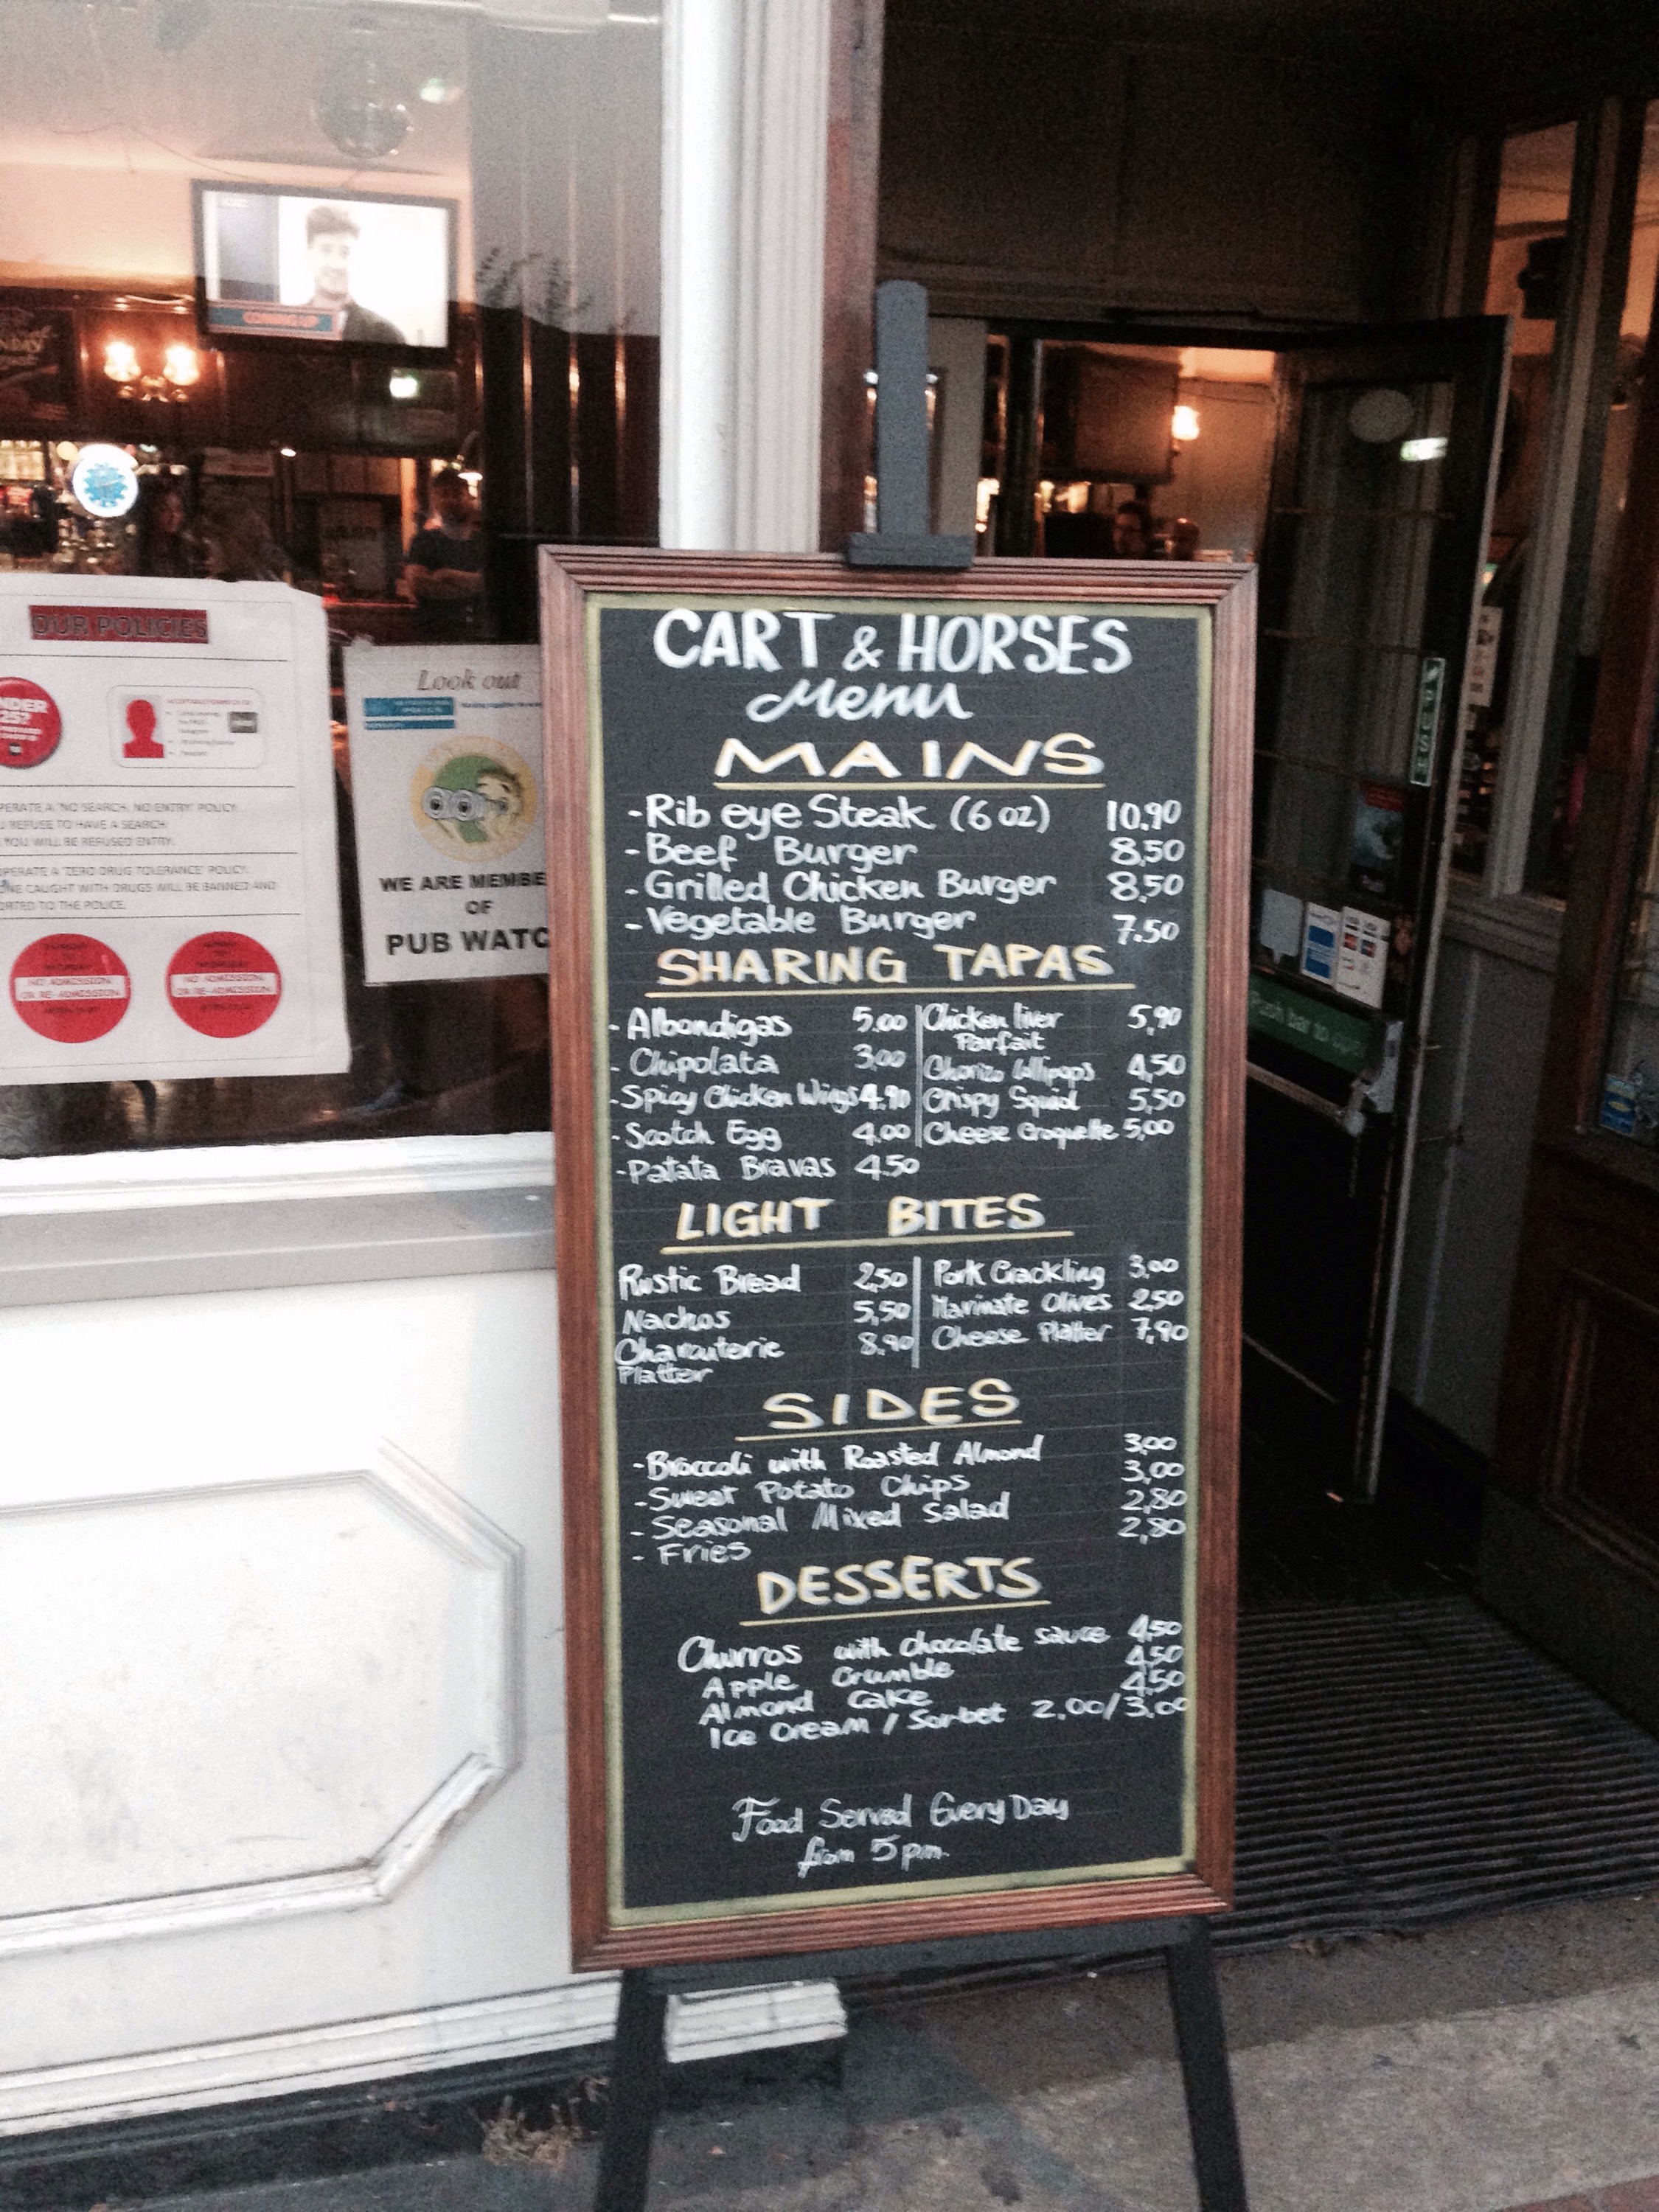 COMING UP
OUR POLICIES
NDER
25?
PERATE A 'NO SEARCH, NO ENTRY' POLICY.
REFUSE TO HAVE A SEARCH
YOU WILL BE REFUSED ENTRY.
PERATE A 'ZERO DRUG TOLERANCE' POLICY.
NE CAUGHT WITH DRUGS WILL BE BANNED AND
ORTED TO THE POLICE.
NO ADMISSION
OR RE-ADMISSION
NO ADMISSION
OR RE-ADMISSION
Look out
WE ARE MEMBE
OF
PUB WATC
CART & HORSES
Menu
MAINS
- Rib eye Steak (6 oz) 10.90
- Beef Burger 8,50
- Grilled Chicken Burger 8,50
- Vegetable Burger 7.50
SHARING TAPAS
- Albondigas 5.00
- Chipolata 3,00
- Spicy Chicken Wings 4.90
- Scotch Egg 4,00
- Patata Bravas 4.50
Chicken liver 5,90
Parfait
Chorizo lollipops 4,50
Crispy Squid 5,50
Cheese Croquette 5,00
LIGHT BITES
Rustic Bread 2,50
Nachos 5,50
Charcuterie 8,90
Platter
Pork Crackling 3,00
Marinate Olives 2,50
Cheese Platter 7,90
SIDES
- Broccoli with Roasted Almond 3,00
- Sweet Potato Chips 3,00
- Seasonal Mixed Salad 2,80
- Fries 2,80
DESSERTS
Churros with chocolate sauce 4,50
Apple Crumble 4,50
Almond Cake 4,50
Ice Cream / Sorbet 2.00/3,00
Food Served Every Day
from 5 pm.
PUSH
Push bar to ope